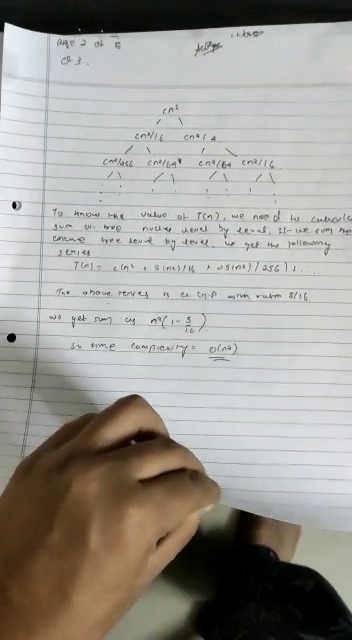 Page 2 of 5
Q3.
cn²
cn²/16 cn²/4
cn²/256 cn²/64 cn²/64 cn²/16
To know the value of T(n), we need to calculate
sum of tree nodes level by level. If we sum the
above tree level by level, we get the following
series
T(n) = c(n² + 5(n²)/16 + 25(n²)/256) + ...
The above series is a G.P with ratio 5/16
we get sum as n²(1 - 5/16)
so time complexity = O(n²)